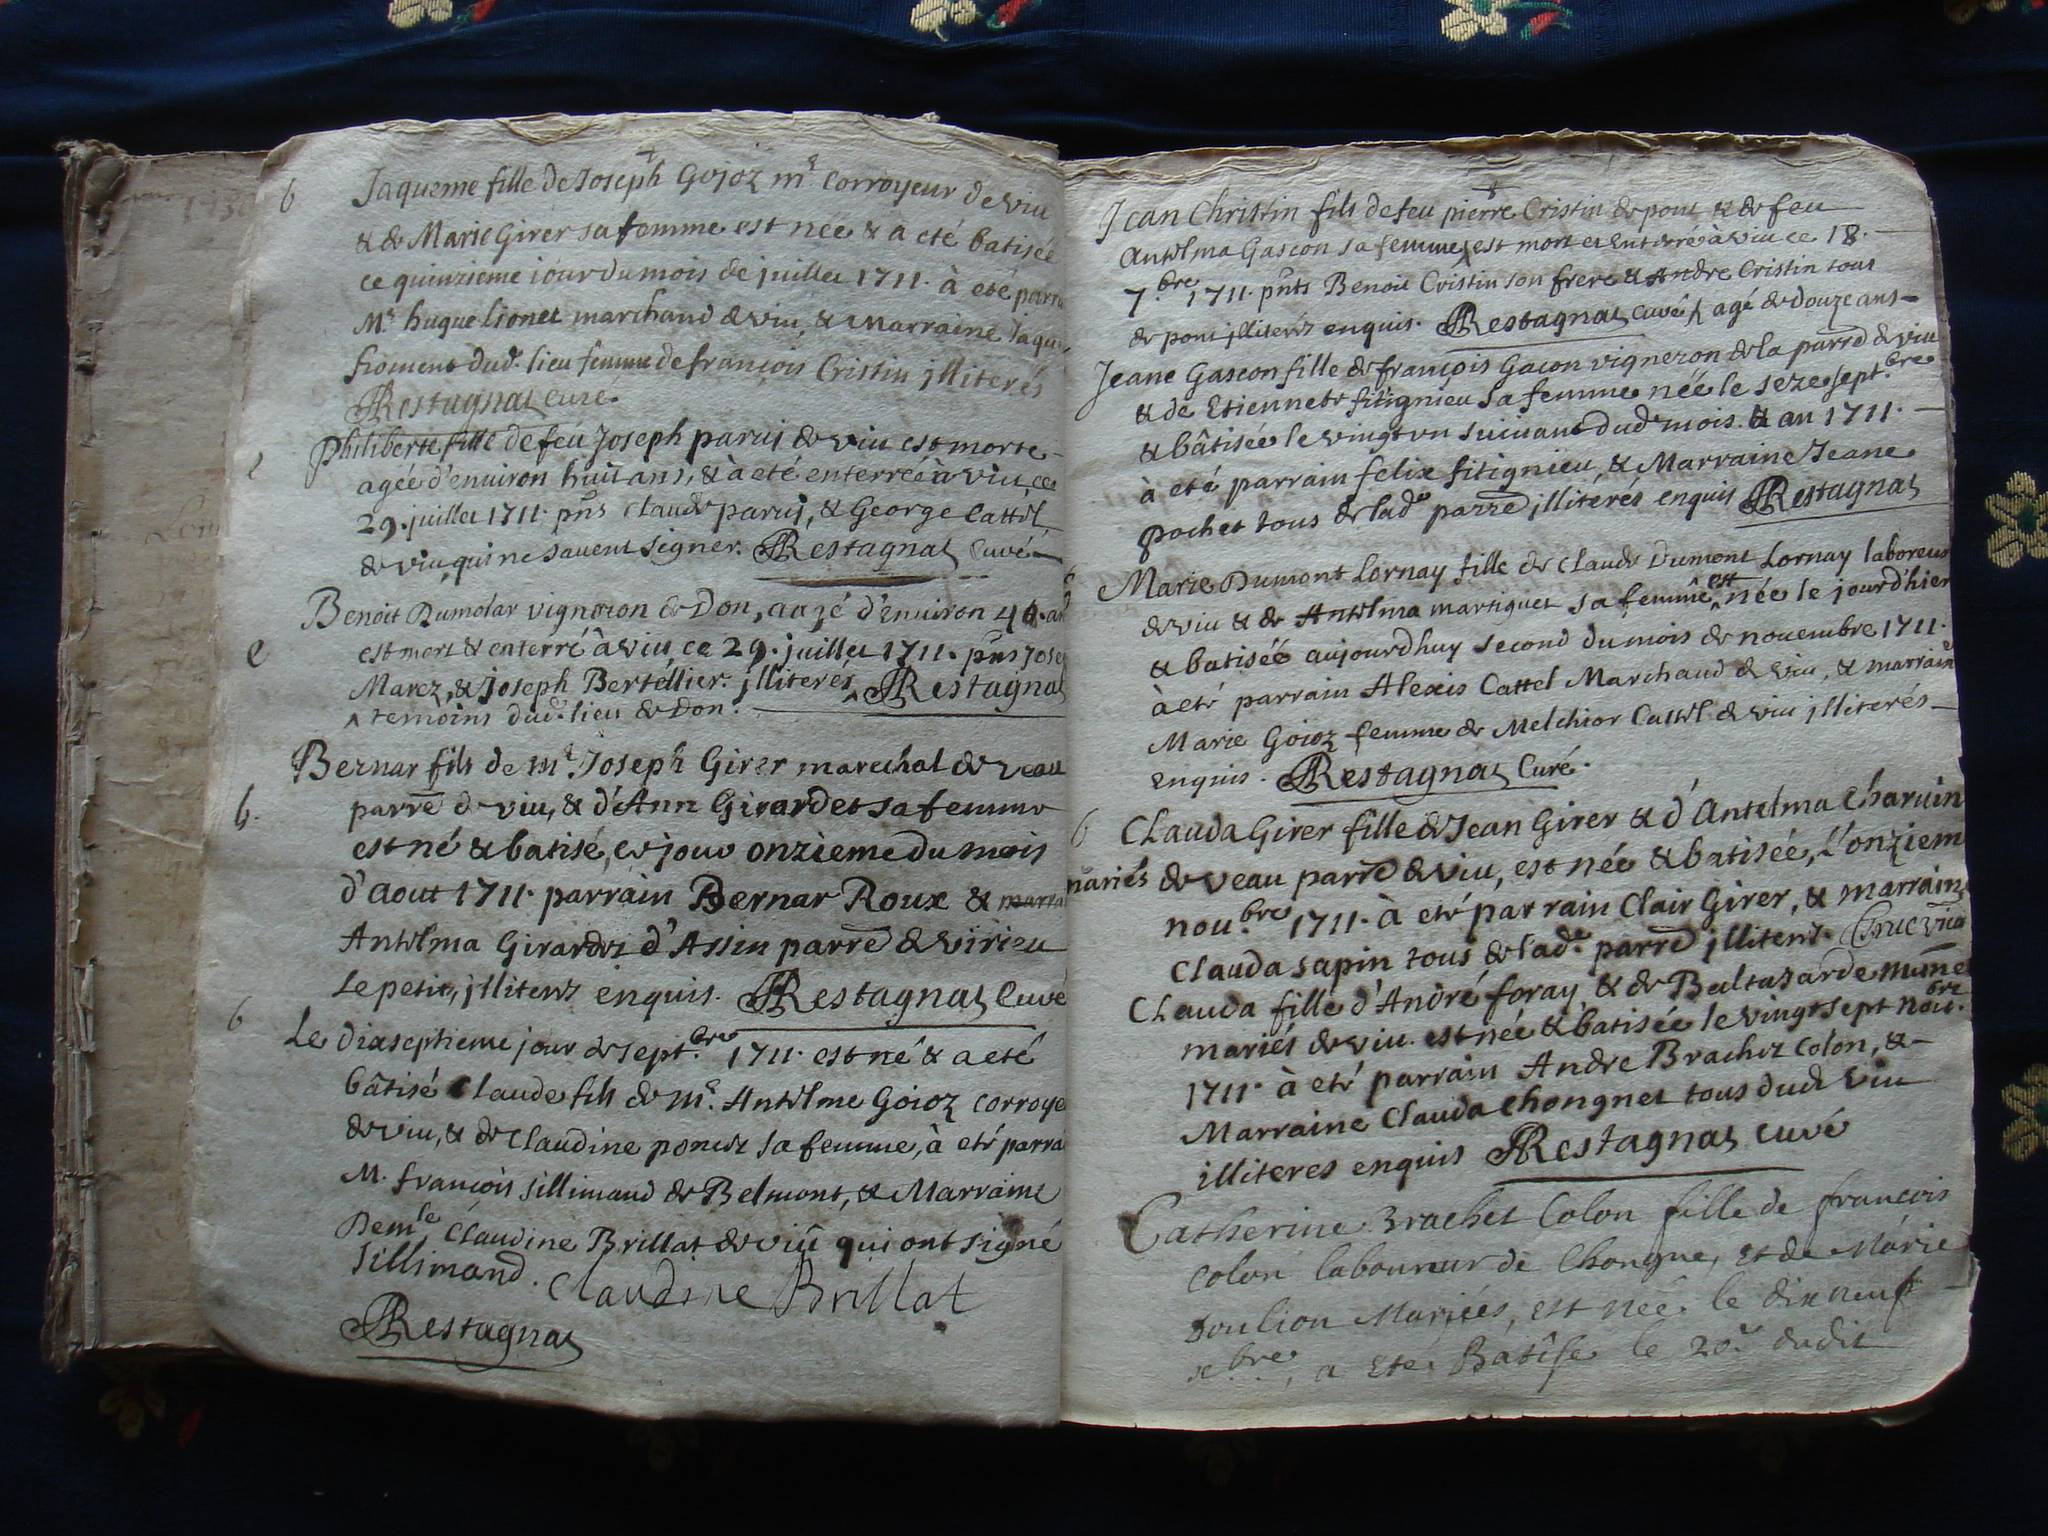 b Jaqueme fille de Joseph Gojoz mr Corroyeur de viu
& de Marie Girer sa femme est née & a eté batisée
ce quinzieme jour du mois de juillet 1711. à eté parra
Mr hugue lionet marchand de viu, & Marraine Jaqu
froment dud. lieu femme de françois Cristin jlliterés
Restagnat curé.
e Philiberte fille de feu Joseph parui de viu est morte
agée d'enuiron huit ans, & à eté enterrée à viu, ce
29. juillet 1711. pnts Claude parui, & George Cattel
de viu qui ne sauent signer. Restagnat Curé
Benoit Dumolar vigneron de Don, aagé d'enuiron 40. an
e est mort & enterré à viu ce 29. juillet 1711. pnts Jose
Marez, & joseph Bertellier. jlliterés ^ Restagnat
^ temoins dud. lieu de Don.
Bernar fils de mr. Joseph Girer marechal de veau
b. parre de viu, & d'Ann Girardet sa femme
est né & batisé, ce jour onzieme du mois
d'aout 1711. parrain Bernar Roux & marra
Antelma Girardet d'Assin parre de virieu
Le petit, jlliterez enquis. Restagnat Curé
b Le dixseptieme jour de sept.bre 1711. est né & a eté
bâtisé Claude fils de mr. Antelme Goioz corroye
de viu, & de Claudine poncet sa femme, à eté parra
M. françois sillimand de Belmont, & Marraine
Demle Claudine Brillat de viu qui ont signé
Sillimand. Claudine Brillat
Restagnat
Jean Christin fils de feu pierre Cristin de pont & de feu
Antelma Gascon sa femme, est mort et enterré à viu ce 18.
7.bre 1711. pnts Benoit Cristin son frere & Andre Cristin tous
de pont jlliterez enquis. Restagnat curé agé de douze ans
Jeane Gascon fille de françois Gacon vigneron de la parre de viu
& de Etiennete fitignieu sa femme née le seze sept.bre
& bâtisée le vingt vn suiuant dud. mois & an 1711.
à eté parrain felix fitignieu, & Marraine Jeane
pochet tous de lad. parre jlliterés enquis Restagnat
Marie Dumont Lornay fille de Claude Dumont Lornay laboreur
de viu & de Antelma martignet sa femme ^est née le jourd'hier
& batisée aujourdhuy second du mois de nouembre 1711.
à eté parrain Alexis Cattel Marchand de viu, & marrain
Marie Goioz femme de Melchior Cattel de viu jlliterés
enquis. Restagnat Curé.
b Clauda Girer fille de Jean Girer & d'Antelma Charuin
mariés de veau parre de viu, est née & batisée, l'onziem
nou.bre 1711. à eté parrain Clair Girer, & marraine
Clauda sapin tous de lad. parre jlliterez.
Clauda fille d'André foray, & de Baltazarde
mariés de viu. est née & batisée le vingt sept nou.bre
1711. à eté parrain Andre Brachet Colon, &
Marraine Clauda Chongnet tous dud. viu
illiteres enquis Restagnat curé
Catherine Brachet Colon fille de francois
Colon laboureur de Chongne, et de Marie
Doulion Mariées, est née le dix neuf
xe.bre, a eté Batîse le 20e dudit